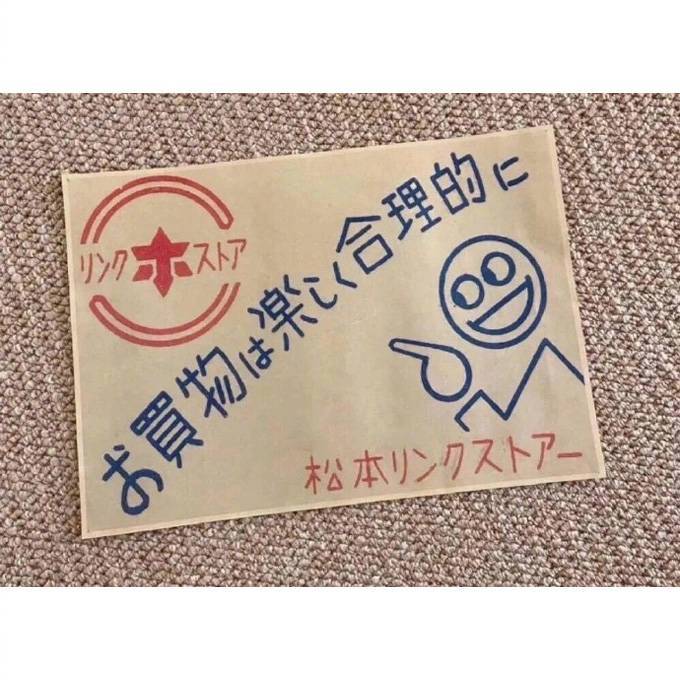 リンク ホ ストア
お買物は楽しく合理的に
松本リンクストアー